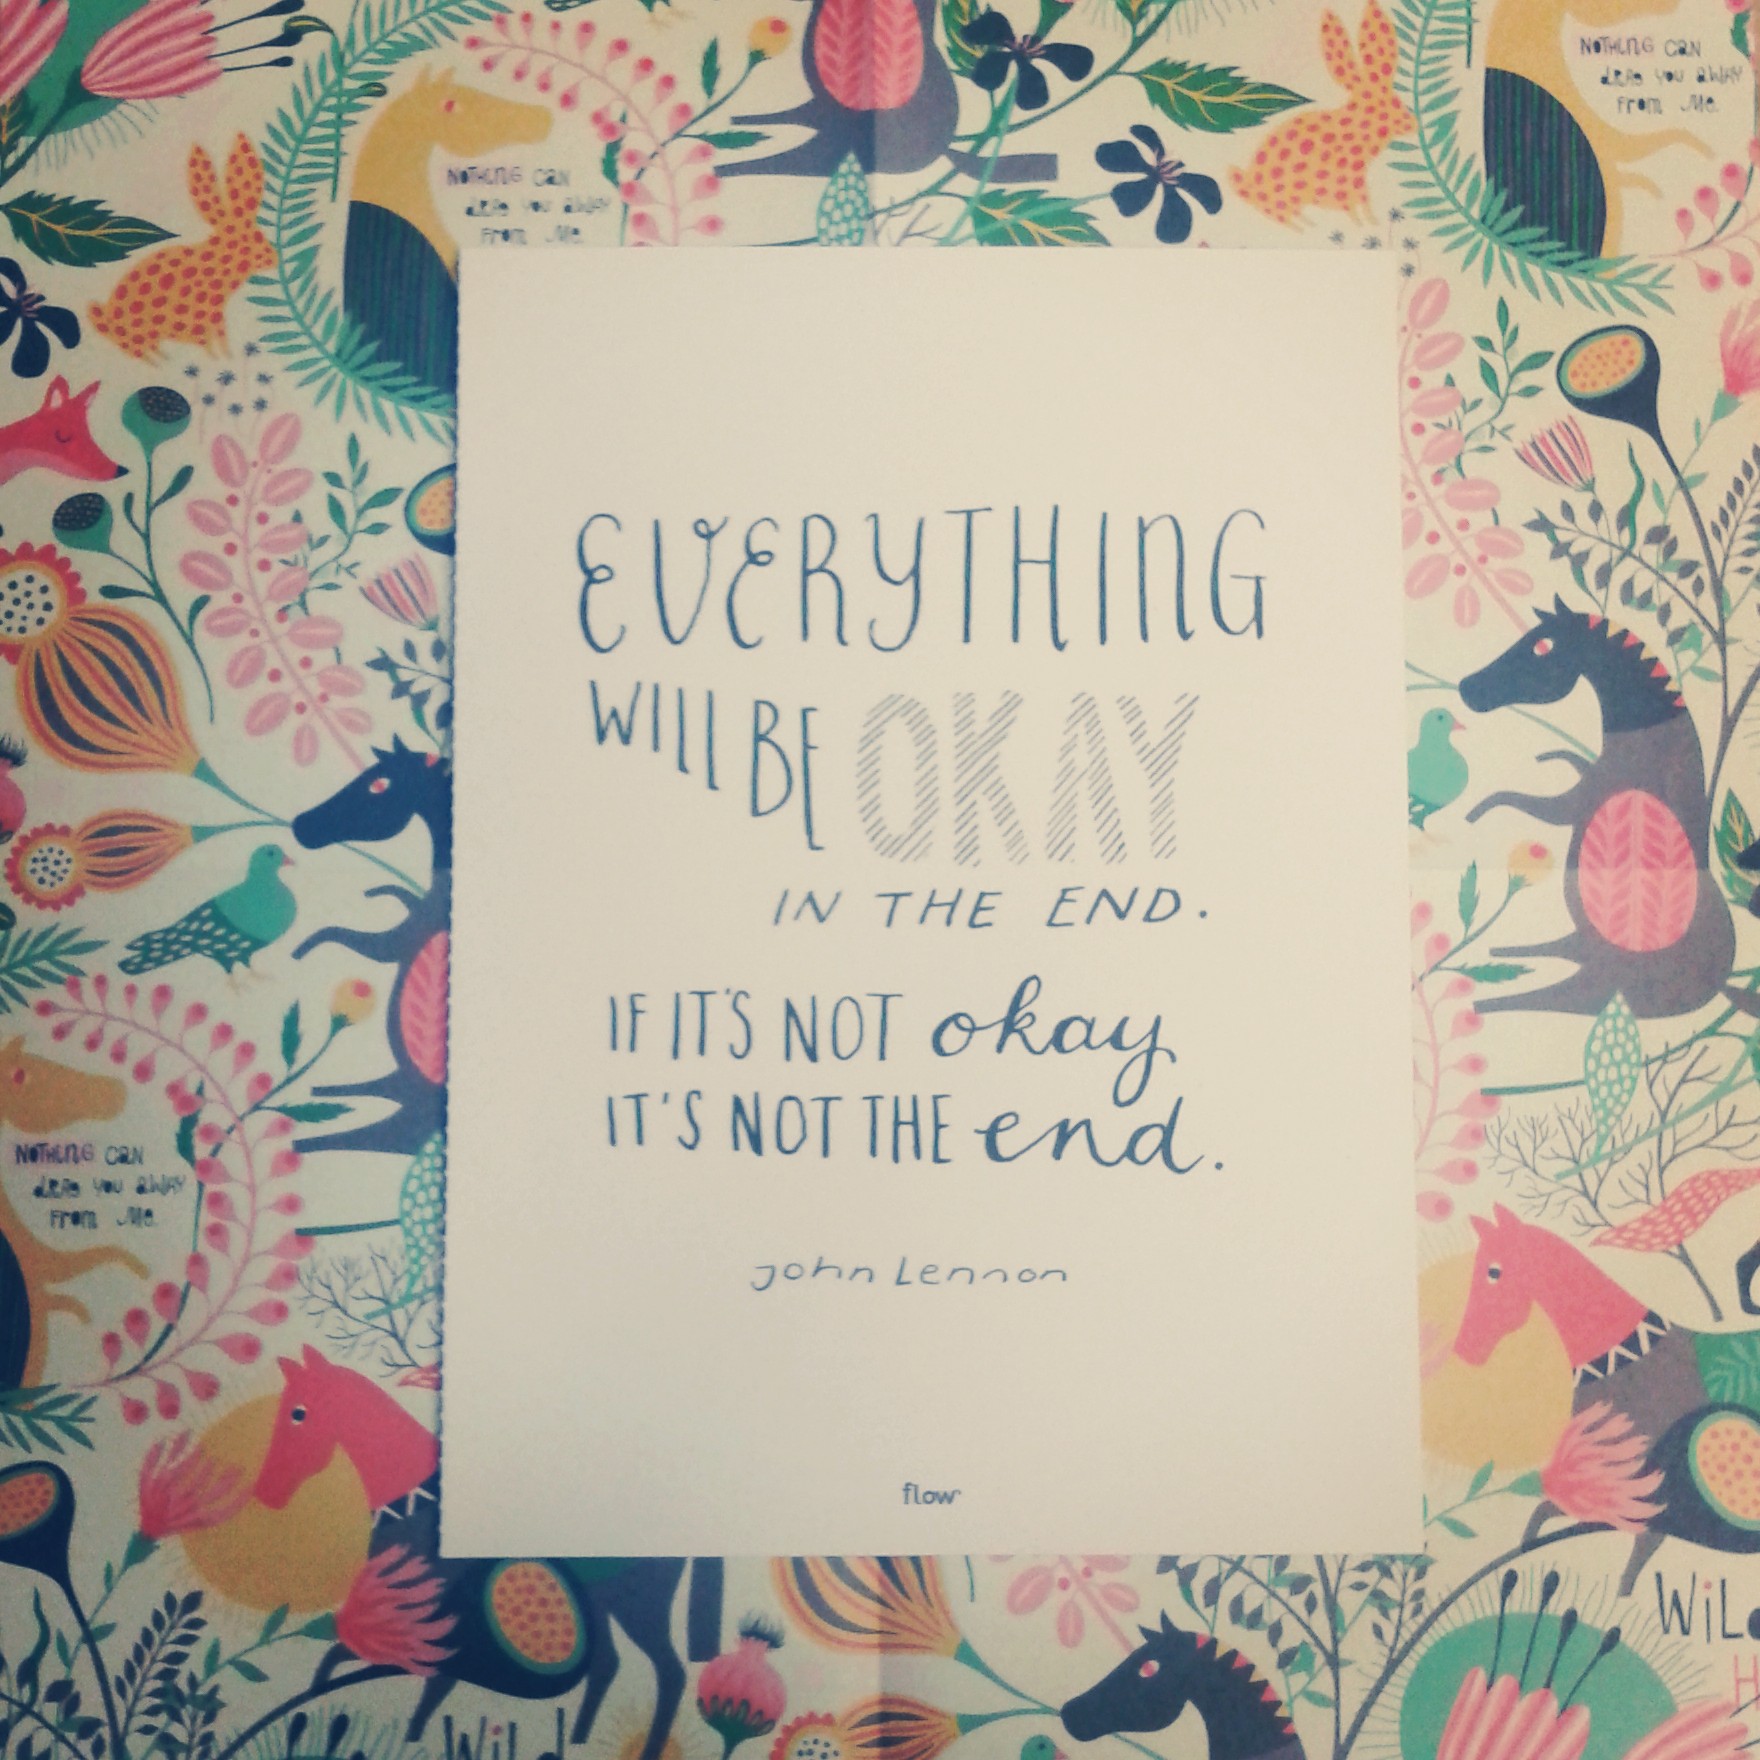 NOTHING CAN
DRAG YOU AWAY
FROM ME.
NOTHING CAN
DRAG YOU AWAY
FROM ME.
EVERYTHING
WILL BE OKAY
IN THE END.
IF IT'S NOT okay
IT'S NOT THE end.
John Lennon
flow
NOTHING CAN
DRAG YOU AWAY
FROM ME.
Wild